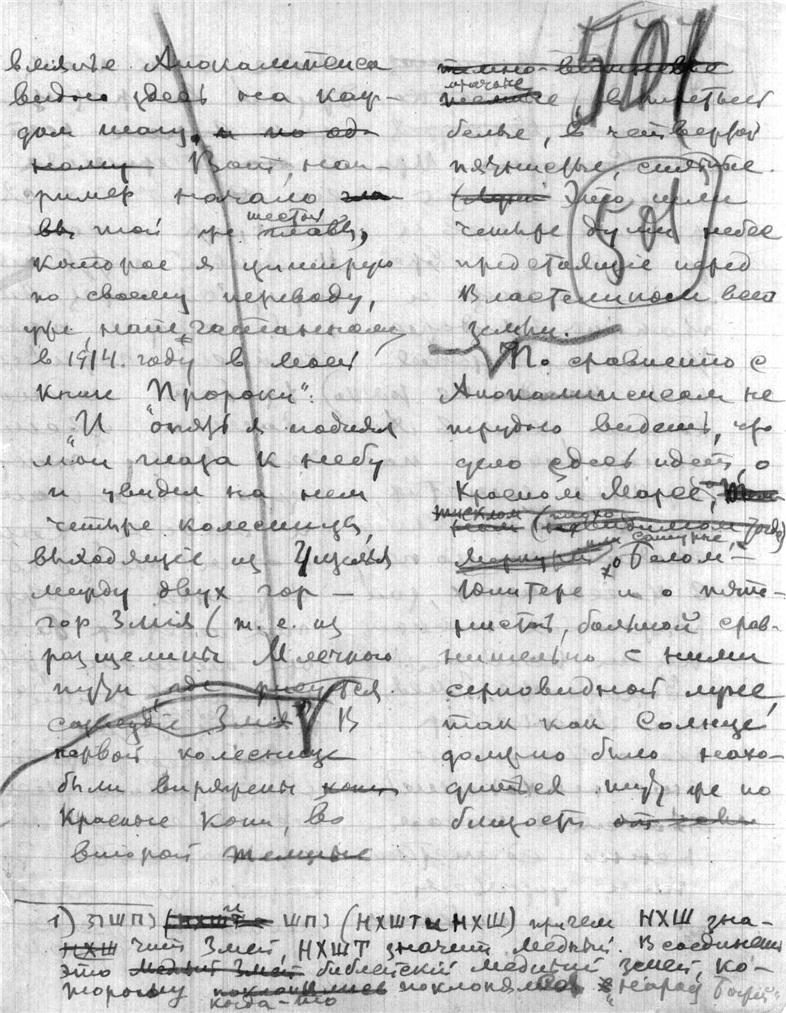 влияние Апокалипсиса
видно здесь на каж-
дом шагу, и по од-
ному Вот, нап-
ример начало гла
вы той же шестой главы,
которое я цитирую
по своему переводу,
уже напечатанному
в 1914 году в моей
книге "Пророки":
"И опять я поднял
мои глаза к небу
и увидел на нем
четыре колесницы,
выходящие из ущелья
между двух гор —
гор Змия (т. е. из
расщелины Млечного
пути где рисуется
созвездие Змия В
первой колеснице
были впряжены кони
красные кони, во
второй темные
501
темно-вишневые
мрачные
темные, в третьей
белые, в четвертой
пятнистые, сильные.
Это шли
четыре духа небес
501
предстоящие перед
Властелином всей
земли.
По сравнению с
Апокалипсисом не
трудно видеть, что
дело здесь идет о
Красном Марсе,
тусклом
или Сатурне,
Меркурии, о белом —
Юпитере и о пятн-
нистой, большой срав-
нительно с ними
серповидной луне,
так как Солнце
должно было нахо-
диться тут же по
близости от
1) НХШТ и ШПЗ (НХШТ и НХШ) причем НХШ зна-
НХШ чит Змей, НХШТ значит медный. В соединении
это Медный Змей библейский медный змей, ко-
торому поклонялись поклонялся "народ Божий"
когда-то